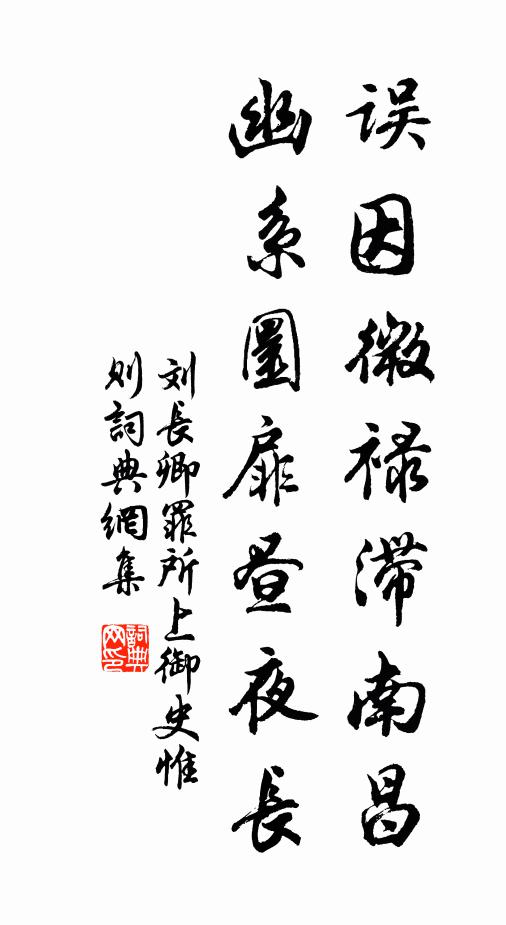 误因微禄滞南昌
幽系圜扉昼夜長
刘長卿罪所上御史惟
则詞典網集
詞典網印